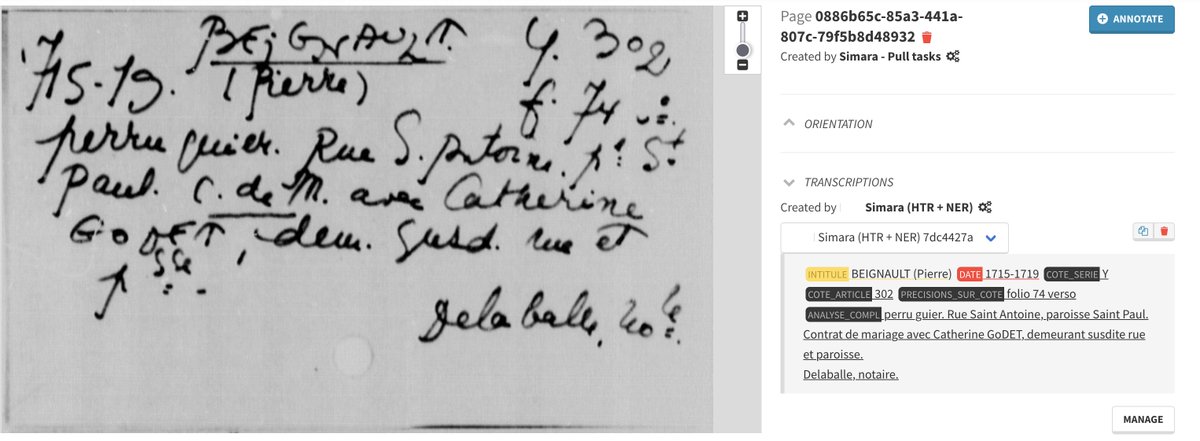 BEiGNAULT. Y. 302
1715-19. (Pierre) f. 74 vº.
perru quier. Rue S. Antoine, pse St
Paul. C. de M. avec Catherine
GoDET, dem. susd. rue et
p sse.
Delaballe, no re.
Page 0886b65c-85a3-441a-
807c-79f5b8d48932
Created by Simara - Pull tasks
ANNOTATE
ORIENTATION
TRANSCRIPTIONS
Created by Simara (HTR + NER)
Simara (HTR + NER) 7dc4427a
INTITULE BEIGNAULT (Pierre) DATE 1715-1719 COTE_SERIE Y
COTE_ARTICLE 302 PRECISIONS_SUR_COTE folio 74 verso
ANALYSE_COMPL perru guier. Rue Saint Antoine, paroisse Saint Paul.
Contrat de mariage avec Catherine GoDET, demeurant susdite rue
et paroisse.
Delaballe, notaire.
MANAGE